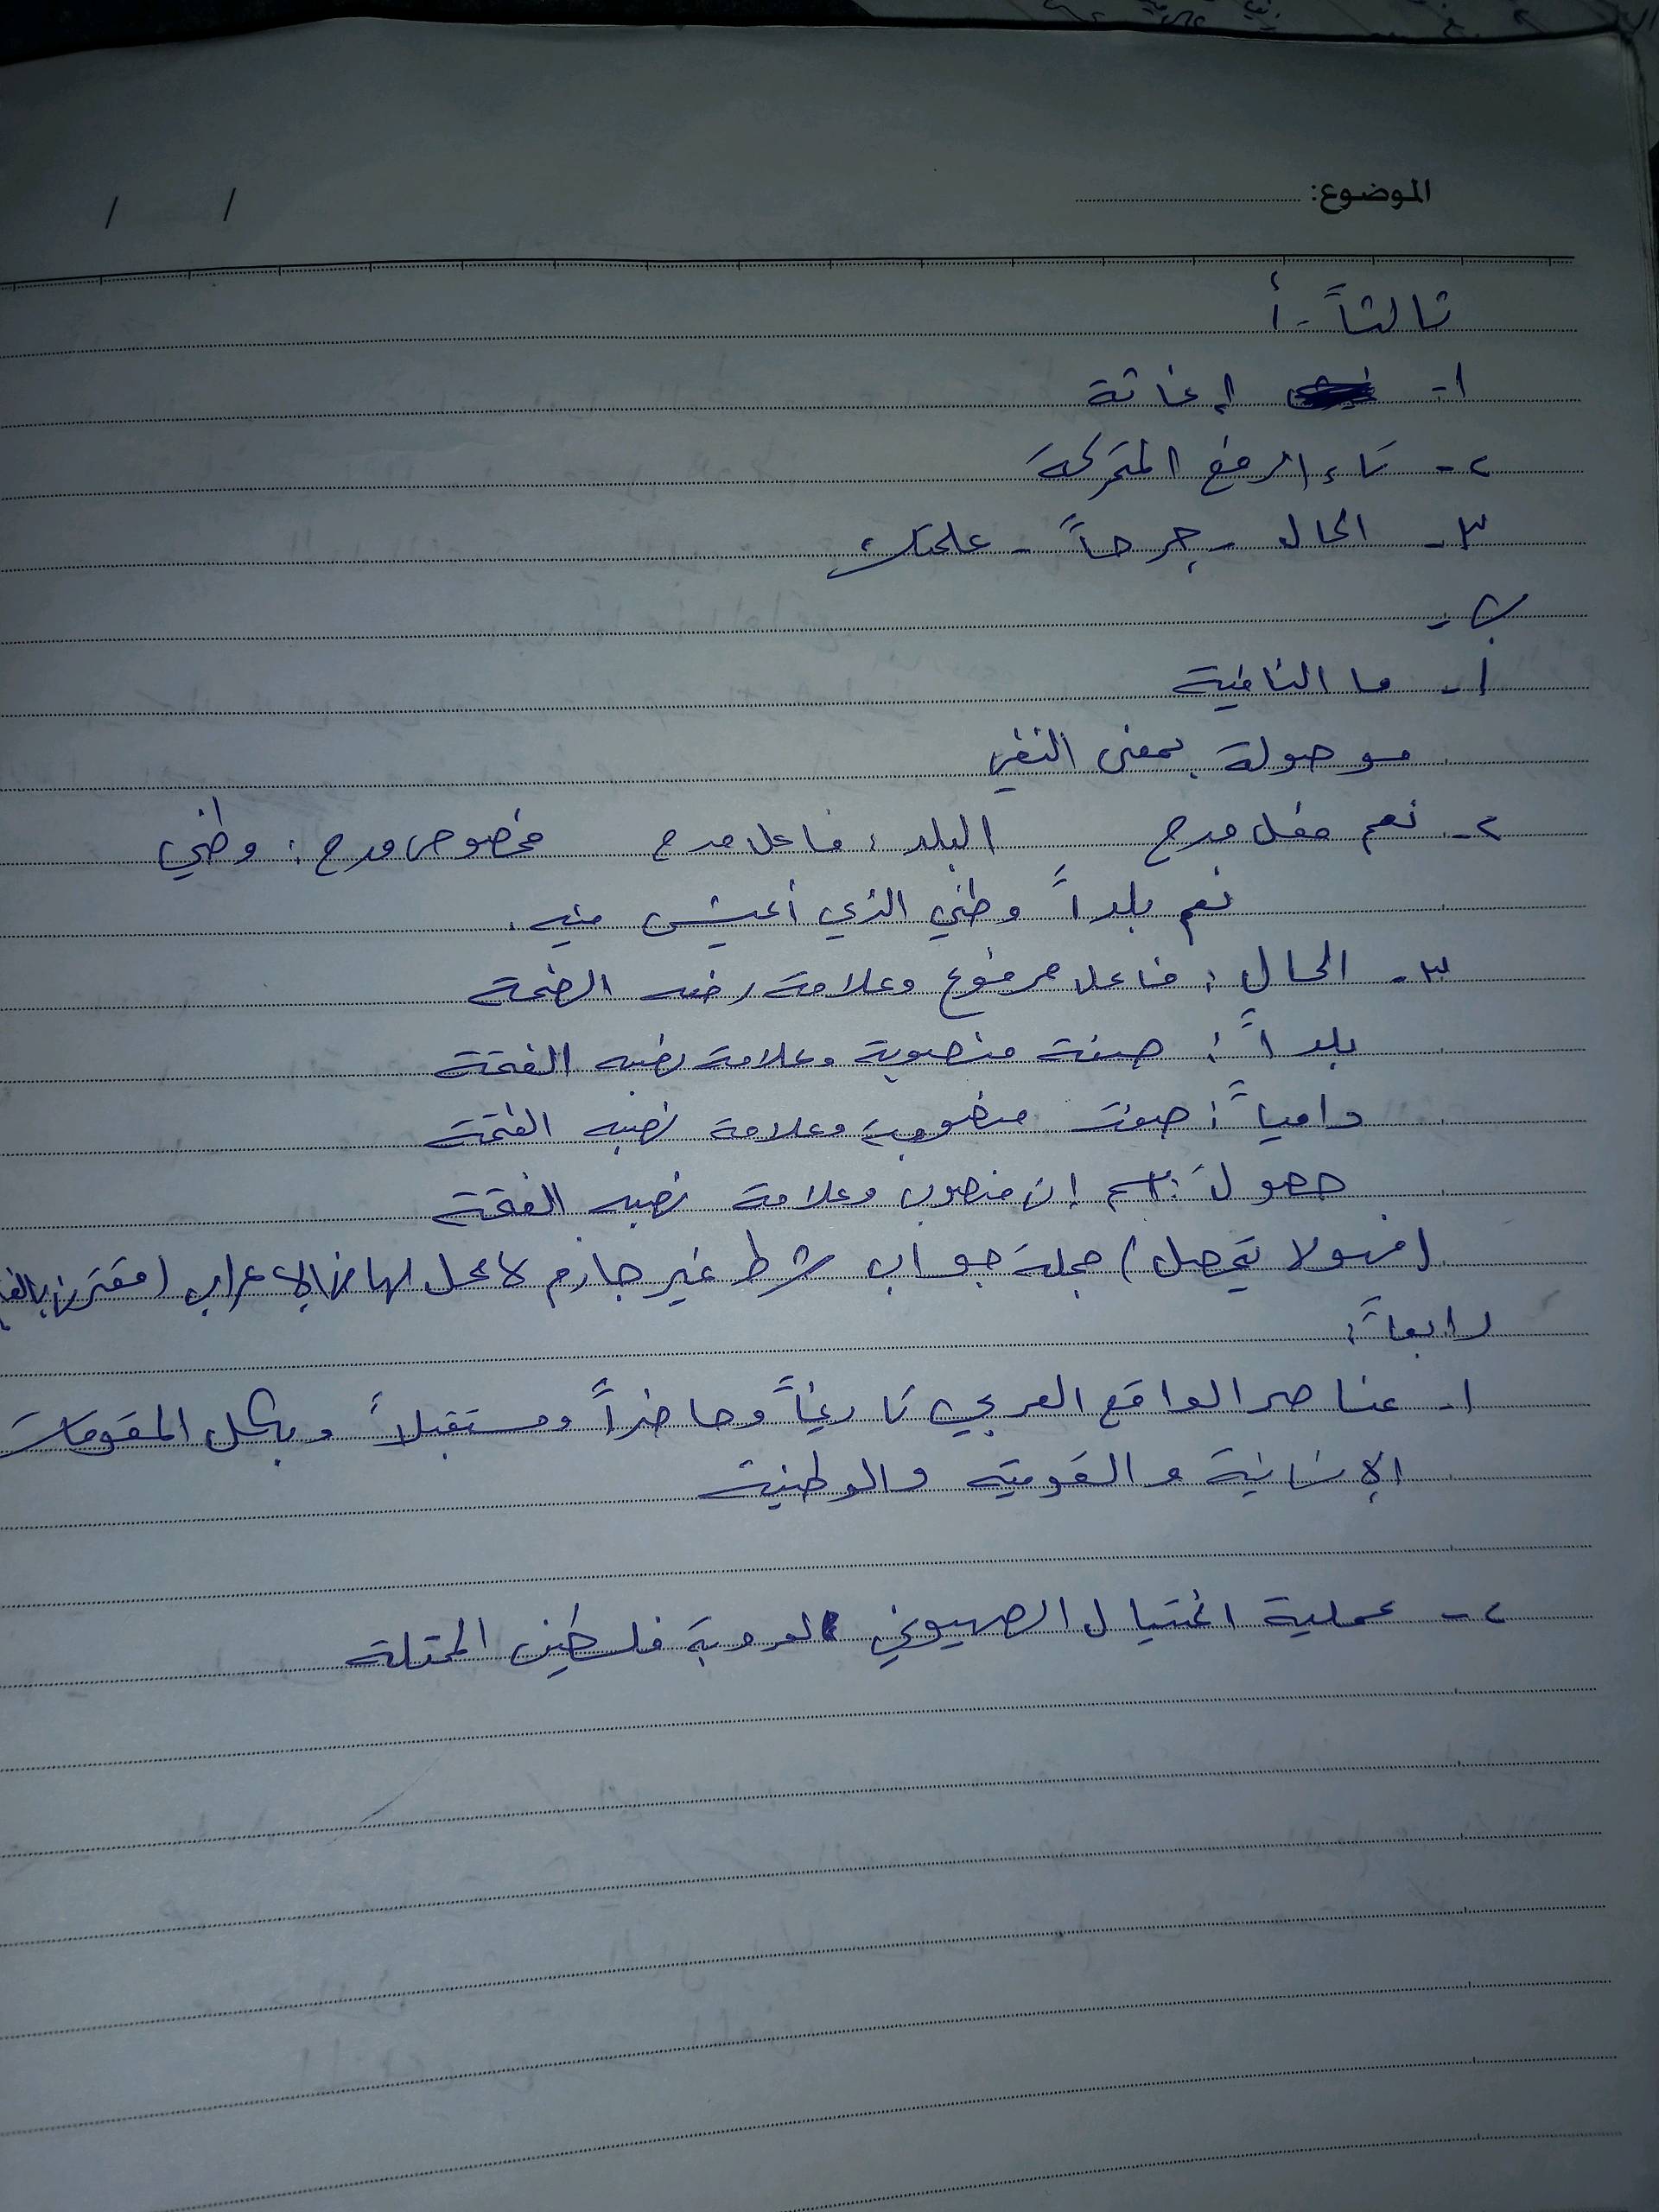 الموضوع:
/ /
ثالثاً - أ
١- إغاثة
٢- تاء الرفع المتحركة
٣- الحال - جرحاً - علمتك
ب -
١- ما النافية
موصولة بمعنى النفي
٢- نعم فعل مدح البلد : فاعل مدح مخصوص مدح : وطني
نعم بلداً وطني الذي أعيش فيه.
٣- الحال : فاعل مرفوع وعلامة رفعه الضمة
بلداً : صفة منصوبة وعلامة نصبه الفتحة
دامياً : صفة منصوبة وعلامة نصبه الفتحة
حصولَ : اسم إن منصوب وعلامة نصبه الفتحة
(فهو لا يحصل) جملة جواب شرط غير جازم لا محل لها من الإعراب (مقترن بالفاء
رابعاً :
١- عناصر الواقع العربي تاريخاً وحاضراً ومستقبلاً وبكل المقومات
الإنسانية والقومية والوطنية
٢- عملية اغتيال الصهيوني لعروبة فلسطين المحتلة